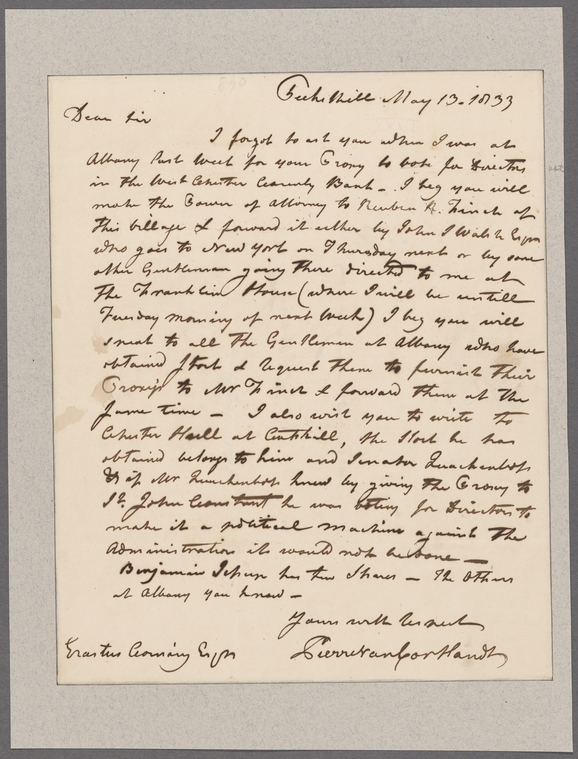 Peekskill May 13. 1833
Dear Sir
I forgot to ask you when I was at
Albany last Week for your Proxy to vote for Directors
in the West Chester County Bank - I beg you will
make the Power of Attorney to Reuben R. Finch of
this Village & forward it either by John I Walsh Esqr
who goes to New York on Thursday next or by some
other Gentleman going there directed to me at
the Franklin House (where I will be untill
Tuesday morning of next Week) I beg you will
speak to all the Gentlemen at Albany who have
obtained Stock & request them to furnish their
Proxies to Mr Finch & forward them at the
same time - I also wish you to write to
Chester Hull at Catskill, the Stock he has
obtained belongs to him and Senator Quackenboss
& if Mr Quackenboss knew by giving the Proxy to
St. John Constant he was voting for Directors to
make it a political machine against the
Administration it would not be done -
Benjamin has two Shares - The Others
at Albany you know -
Yours with respect
Pierre Van Cortlandt
Erastus Corning Esqr